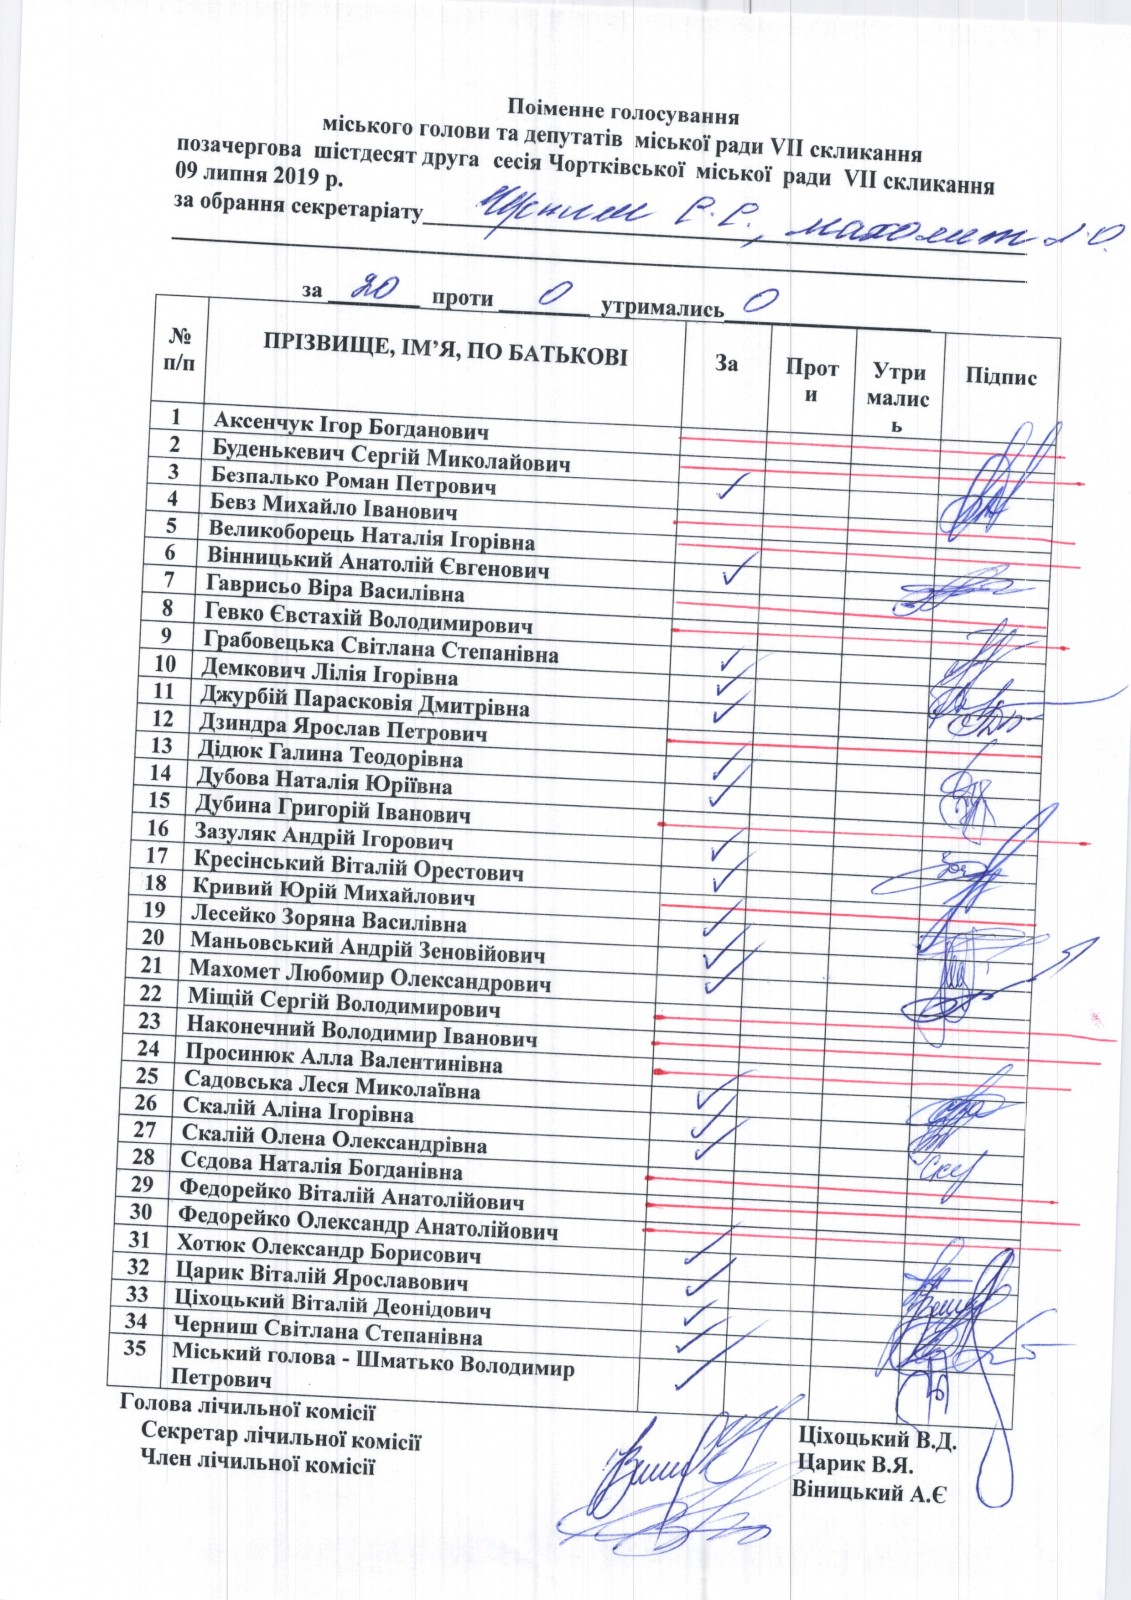 Поіменне голосування
міського голови та депутатів міської ради VII скликання
позачергова шістдесят друга сесія Чортківської міської ради VII скликання
09 липня 2019 р.
за обрання секретаріату Черниш С.С., Махомет Л.О.
за 20 проти 0 утримались 0
№ п/п ПРІЗВИЩЕ, ІМ’Я, ПО БАТЬКОВІ За Проти Утримались Підпис
1 Аксенчук Ігор Богданович
2 Буденькевич Сергій Миколайович
3 Безпалько Роман Петрович ✓
4 Бевз Михайло Іванович
5 Великоборець Наталія Ігорівна
6 Вінницький Анатолій Євгенович ✓
7 Гаврисьо Віра Василівна
8 Гевко Євстахій Володимирович
9 Грабовецька Світлана Степанівна ✓
10 Демкович Лілія Ігорівна ✓
11 Джурбій Парасковія Дмитрівна ✓
12 Дзиндра Ярослав Петрович
13 Дідюк Галина Теодорівна ✓
14 Дубова Наталія Юріївна ✓
15 Дубина Григорій Іванович
16 Зазуляк Андрій Ігорович ✓
17 Кресінський Віталій Орестович ✓
18 Кривий Юрій Михайлович
19 Лесейко Зоряна Василівна ✓
20 Маньовський Андрій Зеновійович ✓
21 Махомет Любомир Олександрович ✓
22 Міщій Сергій Володимирович
23 Наконечний Володимир Іванович
24 Просинюк Алла Валентинівна
25 Садовська Леся Миколаївна ✓
26 Скалій Аліна Ігорівна ✓
27 Скалій Олена Олександрівна ✓
28 Сєдова Наталія Богданівна
29 Федорейко Віталій Анатолійович
30 Федорейко Олександр Анатолійович
31 Хотюк Олександр Борисович ✓
32 Царик Віталій Ярославович ✓
33 Ціхоцький Віталій Деонідович ✓
34 Черниш Світлана Степанівна ✓
35 Міський голова - Шматько Володимир ✓
Петрович
Голова лічильної комісії Ціхоцький В.Д.
Секретар лічильної комісії Царик В.Я.
Член лічильної комісії Віницький А.Є